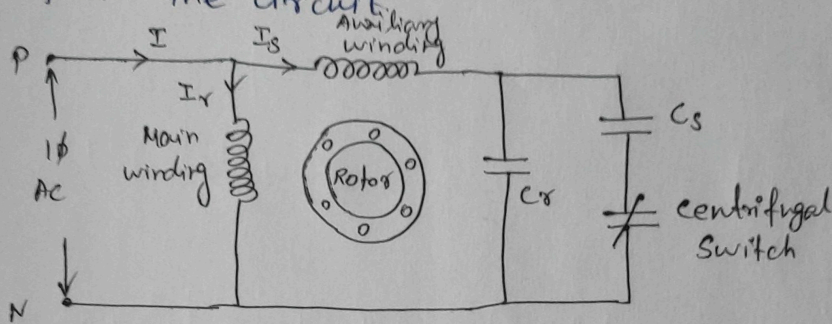 the circuit
Auxiliary
winding
P
I
Is
Ir
Main
winding
1φ
AC
Rotor
Cr
Cs
Centrifugal
Switch
N